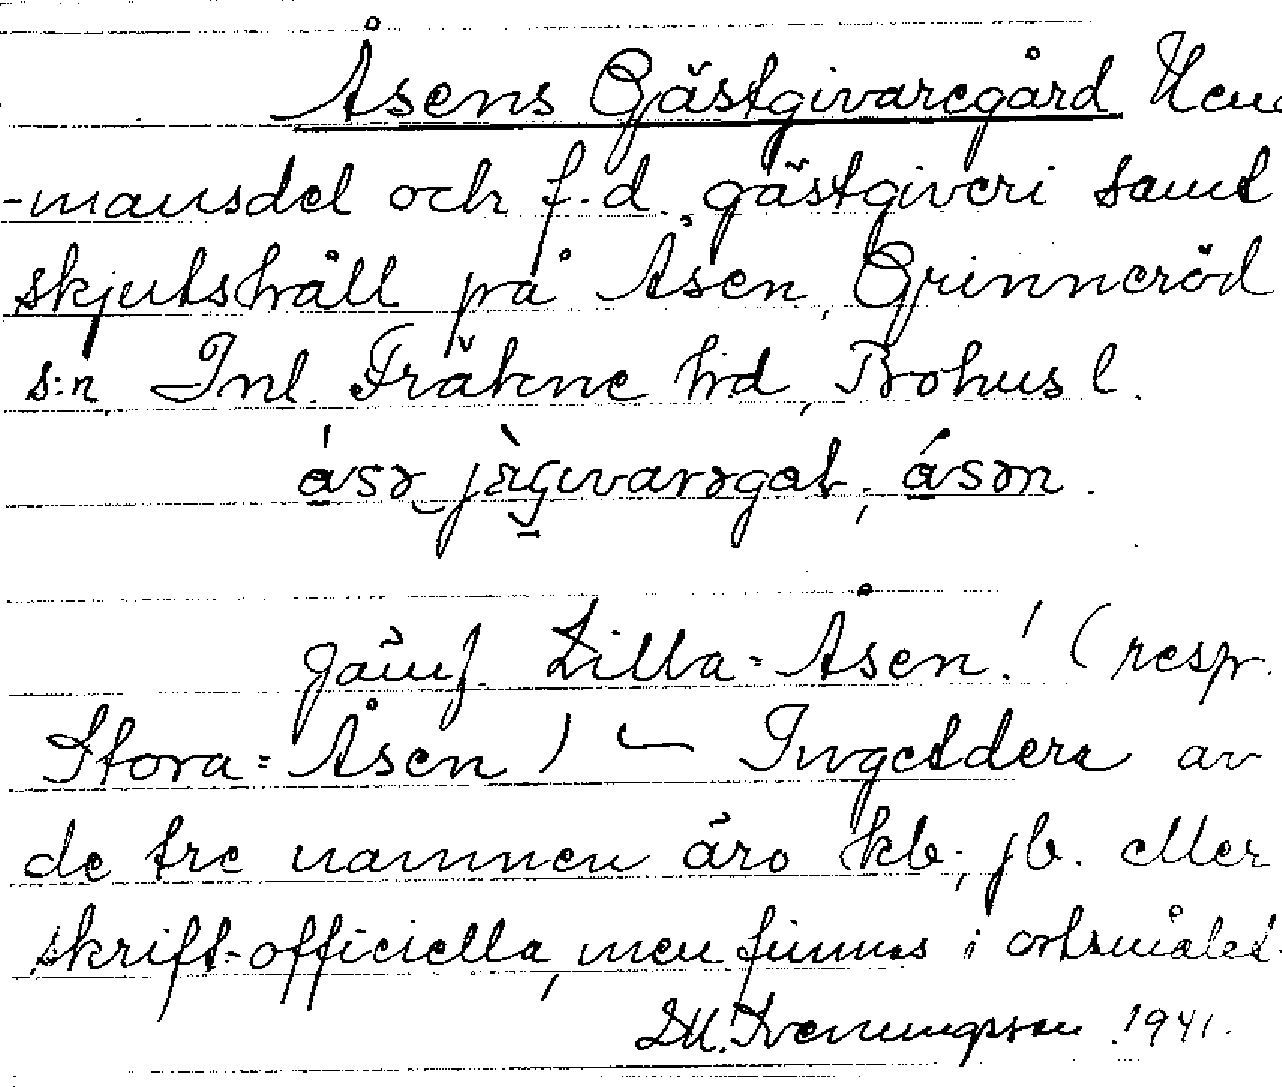 Åsens Gästgivaregård Hem
-mansdel och f.d. gästgiveri samt
skjutshåll på Åsen, Grinneröd
s:n, Inl. Fräkne hd, Bohus l.
åsen.
Jämf. Lilla-Åsen! (resp.
Stora-Åsen) — Ingetdera av
de tre namnen äro kb., jb. eller
skrift-officiella, men finnas i ortsmålet.
1941.